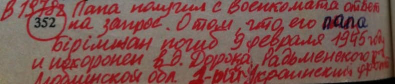 В 1978г Папа получил с военкомата ответ
352 на запрос. О том, что, его папа
Бірімжан погиб 9 февраля 1945 года
и похоронен в д. Дорока, Радьменского
Люблинская обл. 1-ый Украинский фронт